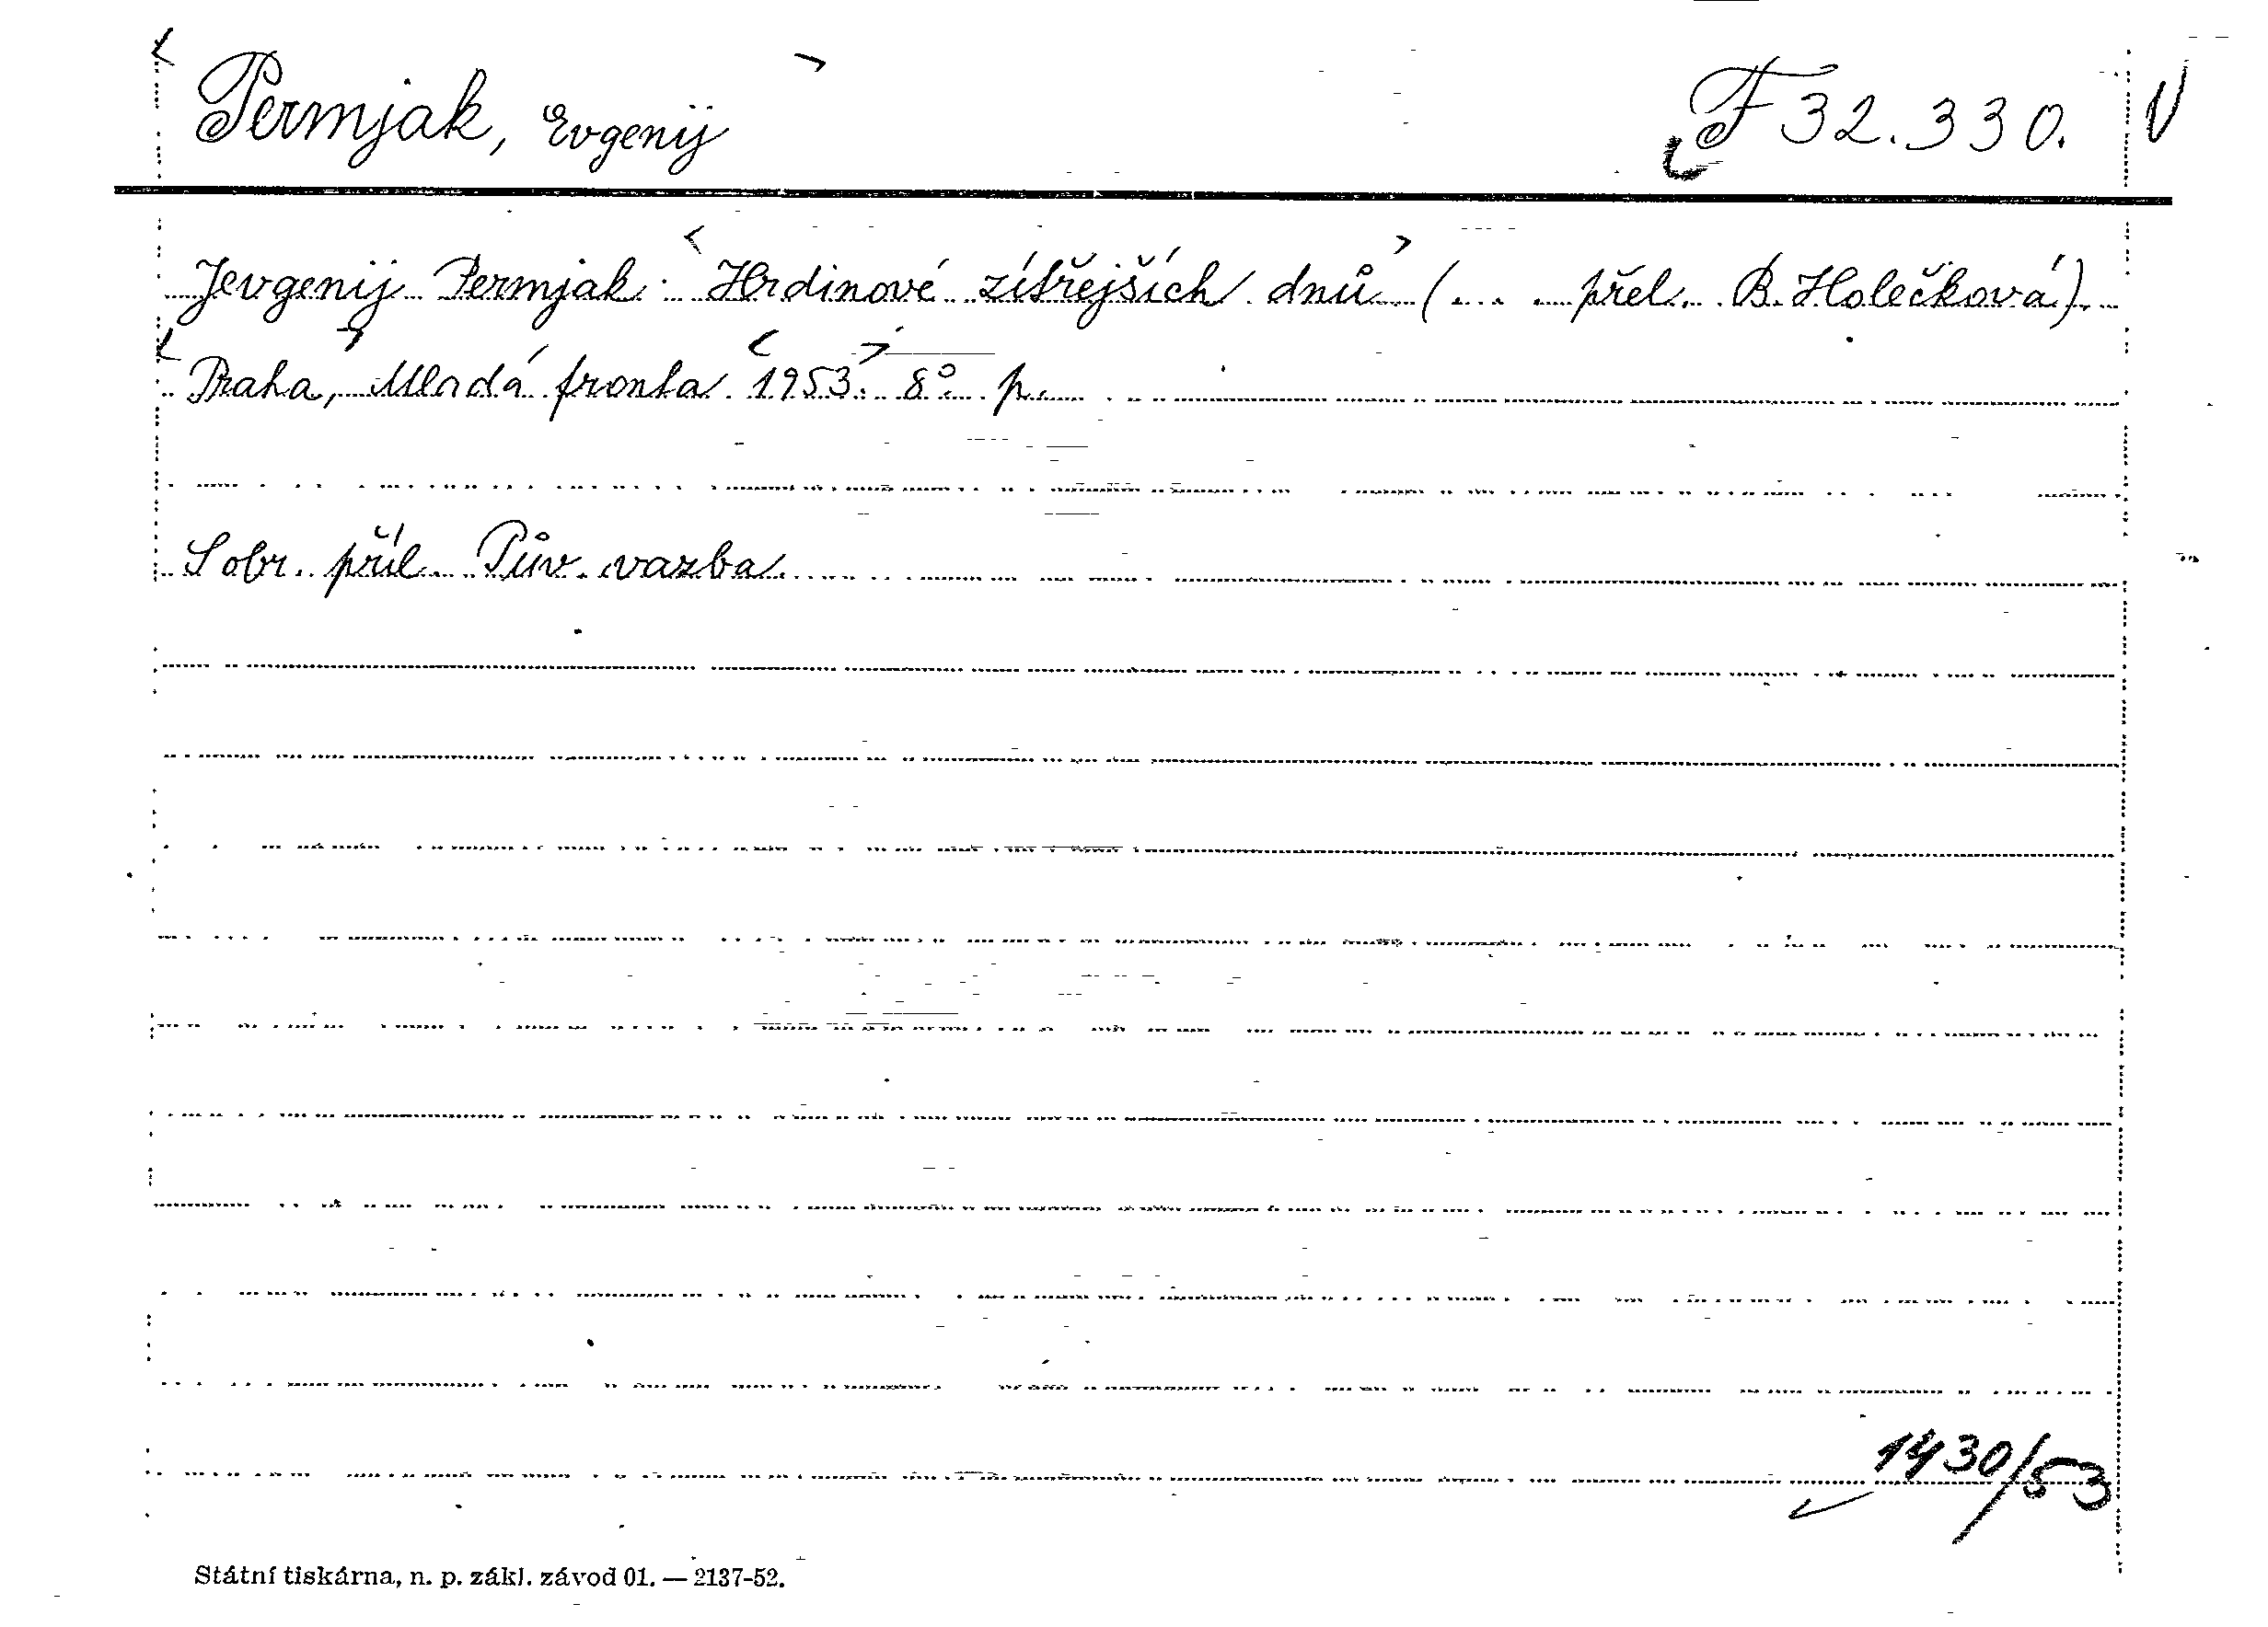 Permjak, Evgenij F 32.330. V
Jevgenij Permjak: Hrdinové zítřejších dnů (... přel. B. Holečková).
Praha, Mladá fronta 1953. 8° p.
S obr. příl. Pův. vazba.
1430/53
Státní tiskárna, n. p. zákl. závod 01. — 2137-52.